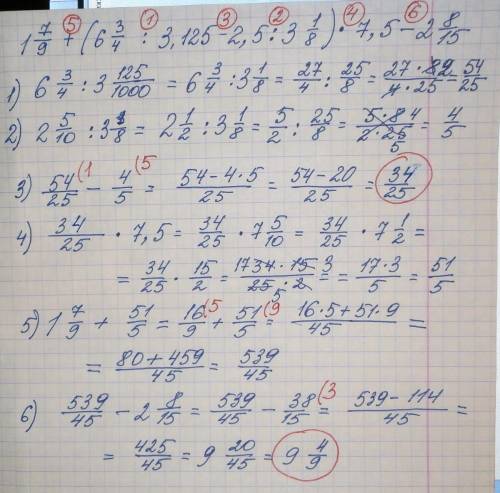 ⑤ ① ③ ② ④ ⑥
1 7/9 + (6 3/4 : 3,125 - 2,5 : 3 1/8) · 7,5 - 2 8/15
1) 6 3/4 : 3 125/1000 = 6 3/4 : 3 1/8 = 27/4 : 25/8 = 27·82/4·25 = 54/25
2) 2 5/10 : 3 1/8 = 2 1/2 : 3 1/8 = 5/2 : 25/8 = 5·84/2·25 5 = 4/5
3) 54/25 (1 - 4/5 (5 = 54-4·5/25 = 54-20/25 = 34/25
4) 34/25 · 7,5 = 34/25 · 7 5/10 = 34/25 · 7 1/2 =
= 34/25 · 15/2 = 17 34·15 3/25·2 5 = 17·3/5 = 51/5
5) 1 7/9 + 51/5 = 16/9 (5 + 51/5 (9 = 16·5+51·9/45 =
= 80+459/45 = 539/45
6) 539/45 - 2 8/15 = 539/45 - 38/15 (3 = 539-114/45 =
= 425/45 = 9 20/45 = 9 4/9